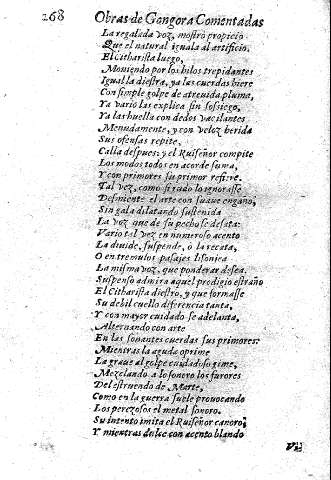 268 Obras de Gongora Comentadas
La regalada voz, mostrò propicio
Que el natural iguala al artificio.
El Citharista luego,
Moviendo por los hilos trepidantes
Igual la diestra, ya las cuerdas hiere
Con simple golpe de atreuida pluma,
Ya vario las explica sin sosiego,
Ya las huella con dedos vacilantes
Menudamente, y con veloz herida
Sus ofensas repite,
Calla despues: y el Ruiseñor compite
Los modos todos en acorde suma,
Y con primores su primor refiere.
Tal vez, como si todo lo ignorasse
Desmiente el arte con suaue engaño,
Sin gala dilatando sustenida
La voz que de su pecho se desata:
Vario tal vez en numeroso acento
La diuide, suspende, ò la recata,
O en tremulos pasajes lisonjea
La misma voz, que ponderar desea.
Suspenso admira aquel prodigio estraño
El Citharista diestro, y que formasse
Su debil cuello diferencia tanta,
Y con mayor cuidado se adelanta,
Alternando con arte
En las sonantes cuerdas sus primores:
Mientras la aguda oprime
La graue al golpe cuidadoso gime,
Mezclando a lo sonoro los furores
Del estruendo de Marte,
Como en la guerra suele prouocando
Los perezosos el metal sonoro.
Su intento imita el Ruiseñor canoro;
Y mientras dulce con acento blando